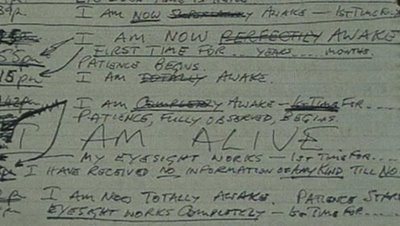 I AM NOW AWAKE — 1ST TIME FOR
I AM NOW PERFECTLY AWAKE
FIRST TIME FOR .... YEARS ..... MONTHS.
PATIENCE BEGINS
15pm I AM TOTALLY AWAKE.
I AM COMPLETELY AWAKE — 1ST TIME FOR....
PATIENCE, FULLY OBSERVED, BEGINS.
I AM ALIVE
MY EYESIGHT WORKS — 1ST TIME FOR....
I HAVE RECEIVED NO INFORMATION OF ANY KIND TILL NO
I AM NOW TOTALLY AWAKE. PATIENCE STAR
EYESIGHT WORKS COMPLETELY — 1ST TIME FOR....